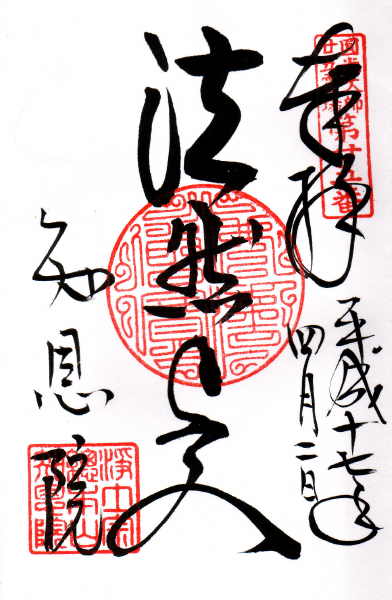 奉拝
圓光大師
廿五霊場
第廿五番
平成十七年
四月二日
法然上人
知恩院
浄土宗
総本山
知恩院